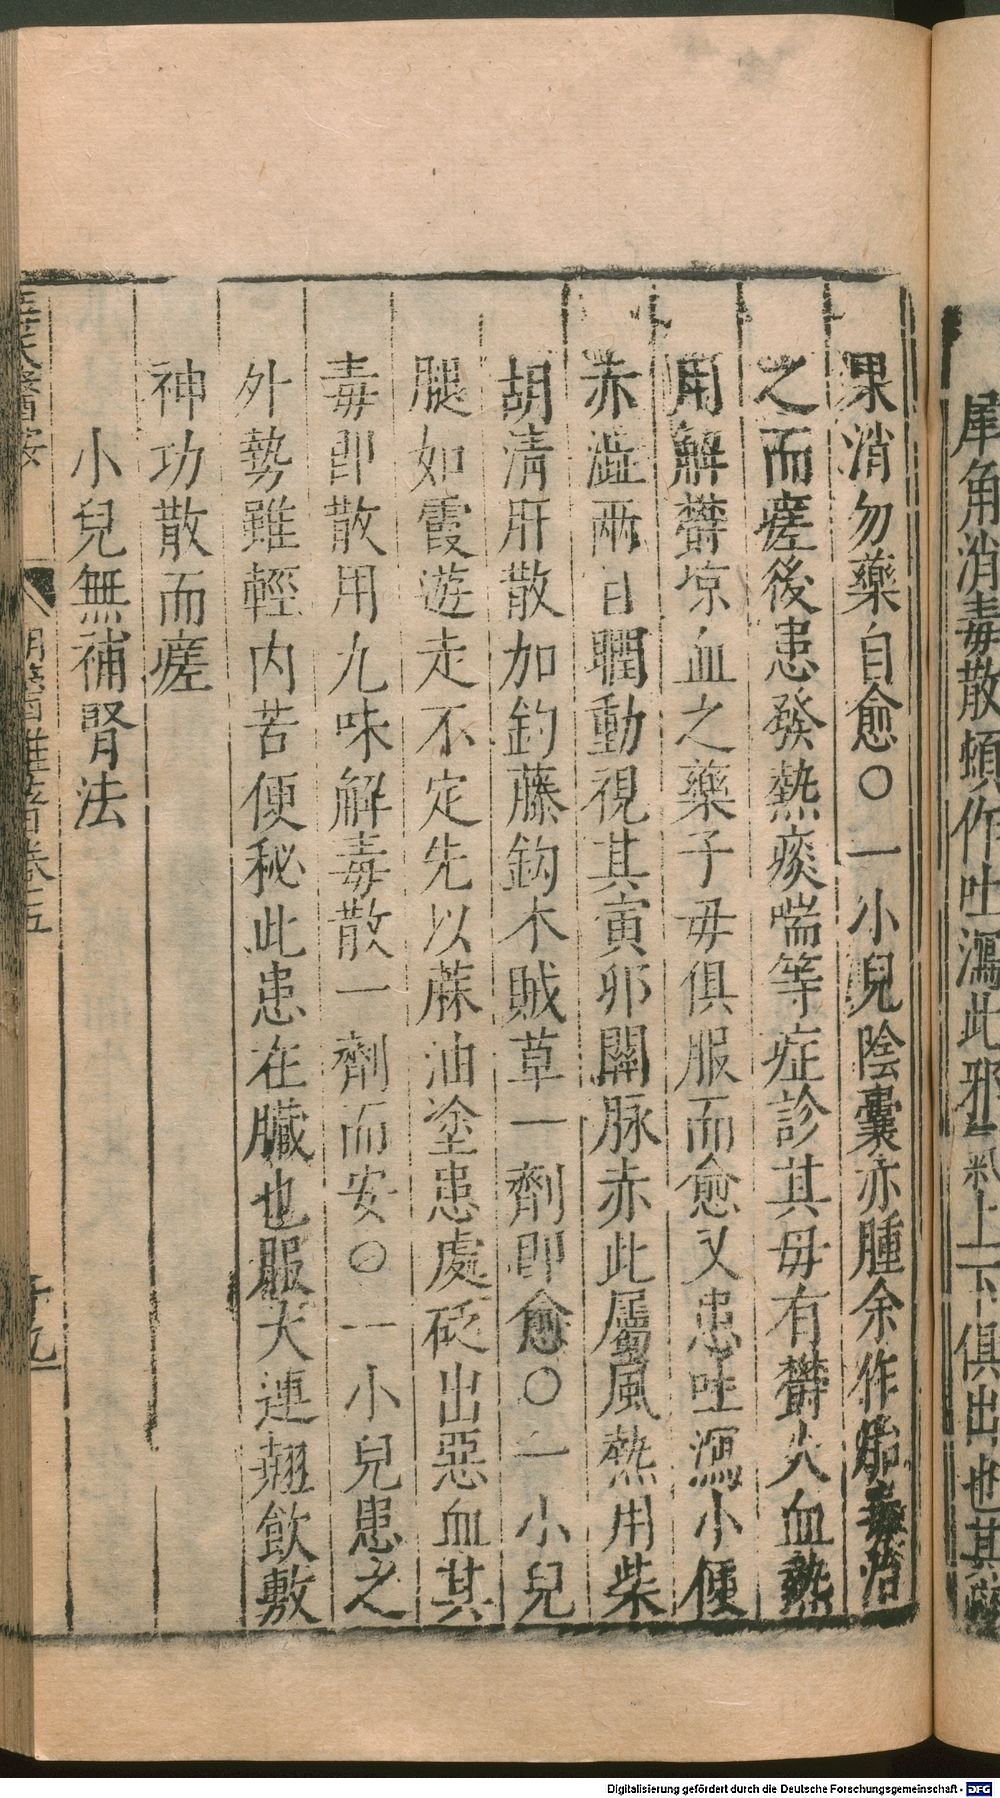 犀角消毒散頻作吐瀉此邪氣上下俱出也其
果消勿藥自愈○一小兒陰囊赤腫余作胎毒治
之而瘥後患發熱痰喘等症診其母有鬱火血熱
用解鬱凉血之藥子母俱服而愈又患吐瀉小便
赤澁兩目瞤動視其寅卯關脉赤此屬風熱用柴
胡清肝散加釣藤鈎木賊草一劑即愈○一小兒
腿如霞遊走不定先以蔴油塗患處砭出惡血其
毒即散用九味解毒散一劑而安○一小兒患之
外勢雖輕内苦便秘此患在臟也服大連翹飲敷
神功散而瘥
小兒無補腎法
醫案
明醫雜著卷五
Digitalisierung gefördert durch die Deutsche Forschungsgemeinschaft - DFG